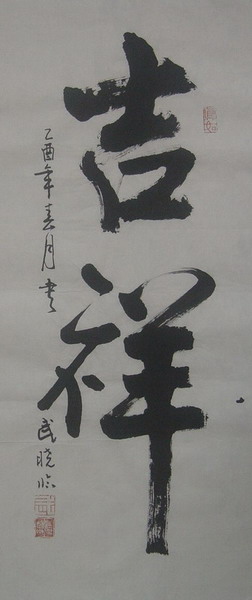 吉祥
乙酉年春月书
武晓临